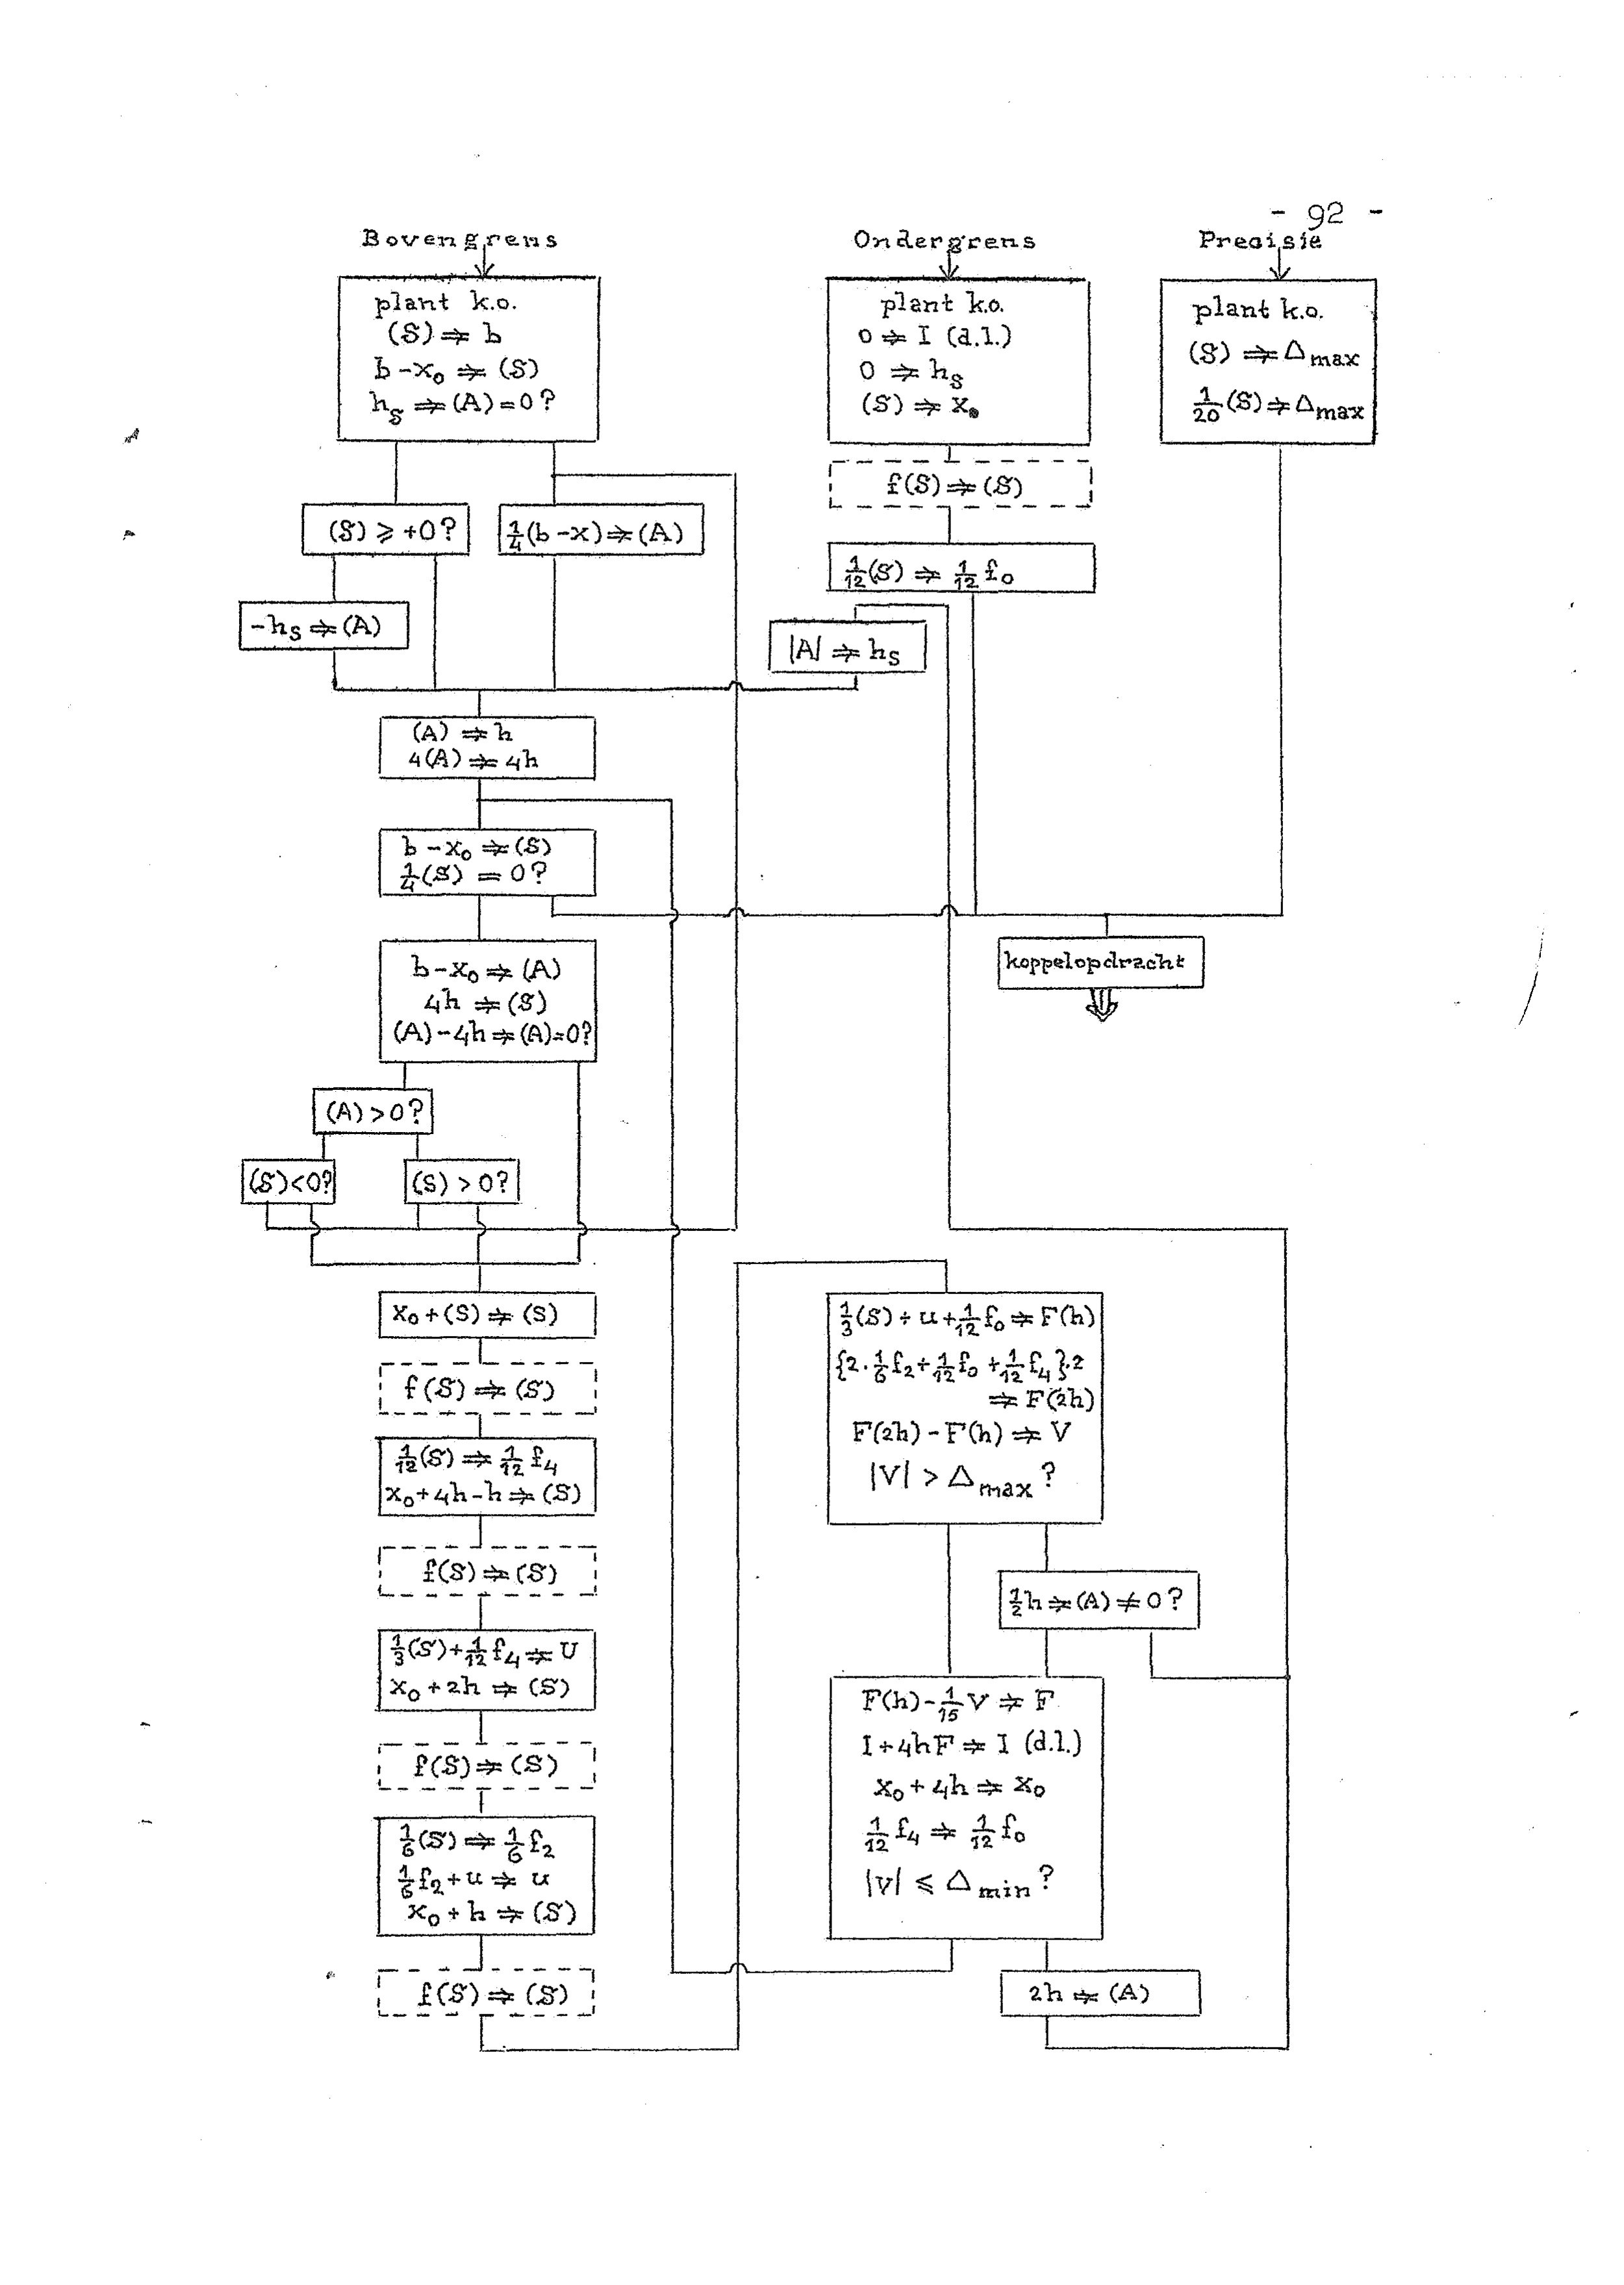 - 92 -
Bovengrens
plant k.o.
(S) ⇒ b
b-x₀ ⇒ (S)
hₛ ⇒ (A) = 0?
(S) ⩾ +0?
¼(b-x) ⇒ (A)
-hₛ ⇒ (A)
(A) ⇒ h
4(A) ⇒ 4h
b-x₀ ⇒ (S)
¼(S) = 0?
b-x₀ ⇒ (A)
4h ⇒ (S)
(A)-4h ⇒ (A)=0?
(A) > 0?
(S) < 0?
(S) > 0?
x₀+(S) ⇒ (S)
f(S) ⇒ (S)
1/12(S) ⇒ 1/12 f₄
x₀+4h-h ⇒ (S)
f(S) ⇒ (S)
⅓(S)+1/12 f₄ ⇒ U
x₀+2h ⇒ (S)
f(S) ⇒ (S)
1/6(S) ⇒ 1/6 f₂
1/6 f₂+u ⇒ u
x₀+h ⇒ (S)
f(S) ⇒ (S)
Ondergrens
plant k.o.
0 ⇒ I (d.l.)
0 ⇒ hₛ
(S) ⇒ x₀
f(S) ⇒ (S)
1/12(S) ⇒ 1/12 f₀
|A| ⇒ hₛ
Precisie
plant k.o.
(S) ⇒ Δmax
1/20(S) ⇒ Δmax
koppelopdracht
⅓(S)+u+1/12 f₀ ⇒ F(h)
{2·1/6 f₂+1/12 f₀+1/12 f₄}·2
⇒ F(2h)
F(2h)-F(h) ⇒ V
|V| > Δmax?
½h ⇒ (A) ≠ 0?
F(h)-1/15 V ⇒ F
I+4hF ⇒ I (d.l.)
x₀+4h ⇒ x₀
1/12 f₄ ⇒ 1/12 f₀
|V| ⩽ Δmin?
2h ⇒ (A)